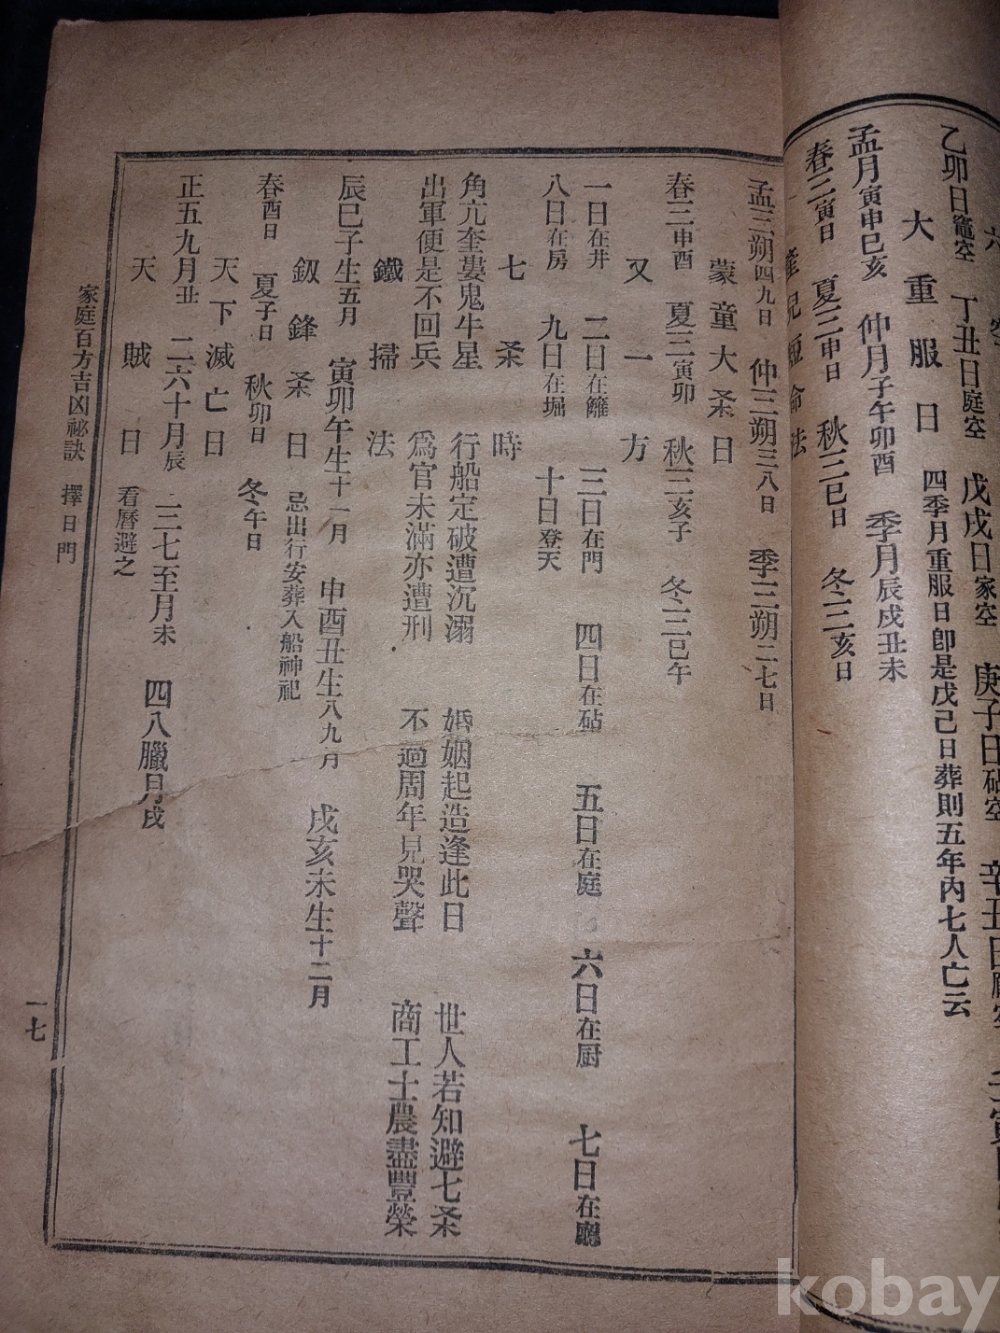 乙卯日竈空 丁丑日庭空 戊戌日家空 庚子日砧空
大重服日 四季月重服日卽是戊己日葬則五年內七人亡云
孟月寅申巳亥 仲月子午卯酉 季月辰戌丑未
短命法
春三寅日 夏三申日 秋三巳日 冬三亥日
孟三朔四九日 仲三朔三八日 季三朔二七日
蒙童大杀日
春三申酉 夏三寅卯 秋三亥子 冬三巳午
又一方
一日在井 二日在籬 三日在門 四日在砧 五日在庭 六日在厨 七日在廳
八日在房 九日在堀 十日登天
七杀時
角亢奎婁鬼牛星 行船定破遭沉溺 婚姻起造逢此日 世人若知避七杀
出軍便是不回兵 爲官未滿亦遭刑 不過周年見哭聲 商工士農盡豐榮
鐵掃法
辰巳子生五月 寅卯午生十一月 申酉丑生八九月 戌亥未生十二月
釼鋒杀日 忌出行安葬入船神祀
春酉日 夏子日 秋卯日 冬午日
天下滅亡日
正五九月丑 二六十月辰 三七至月未 四八臘月戌
天賊日 看曆避之
家庭百方吉凶祕訣 擇日門
一七
kobay